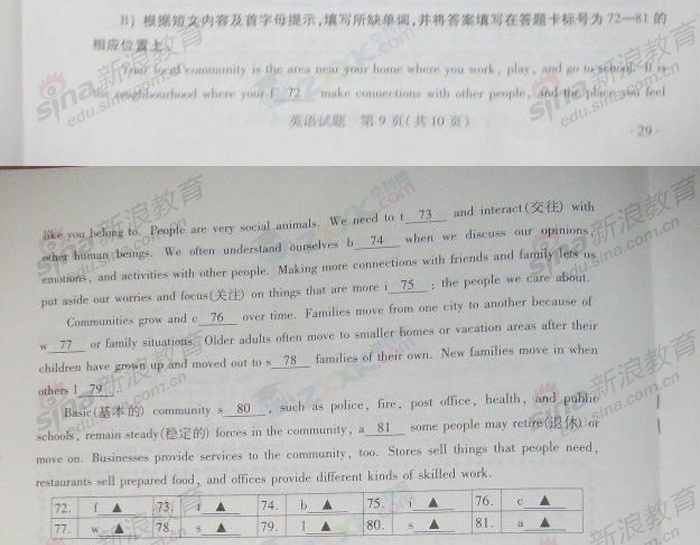 B) 根据短文内容及首字母提示,填写所缺单词,并将答案填写在答题卡标号为 72—81 的
相应位置上。
Your local community is the area near your home where you work, play, and go to school. It is
the neighbourhood where your f 72 make connections with other people, and the place you feel
英语试题 第 9 页(共 10 页)
· 29 ·
like you belong to. People are very social animals. We need to t 73 and interact(交往) with
other human beings. We often understand ourselves b 74 when we discuss our opinions,
emotions, and activities with other people. Making more connections with friends and family lets us
put aside our worries and focus(关注) on things that are more i 75 : the people we care about.
Communities grow and c 76 over time. Families move from one city to another because of
w 77 or family situations. Older adults often move to smaller homes or vacation areas after their
children have grown up and moved out to s 78 families of their own. New families move in when
others l 79 .
Basic(基本的) community s 80 , such as police, fire, post office, health, and public
schools, remain steady(稳定的) forces in the community, a 81 some people may retire(退休) or
move on. Businesses provide services to the community, too. Stores sell things that people need,
restaurants sell prepared food, and offices provide different kinds of skilled work.
72. f ▲ 73. t ▲ 74. b ▲ 75. i ▲ 76. c ▲
77. w ▲ 78. s ▲ 79. l ▲ 80. s ▲ 81. a ▲
sina 新浪教育
edu.sina.com.cn